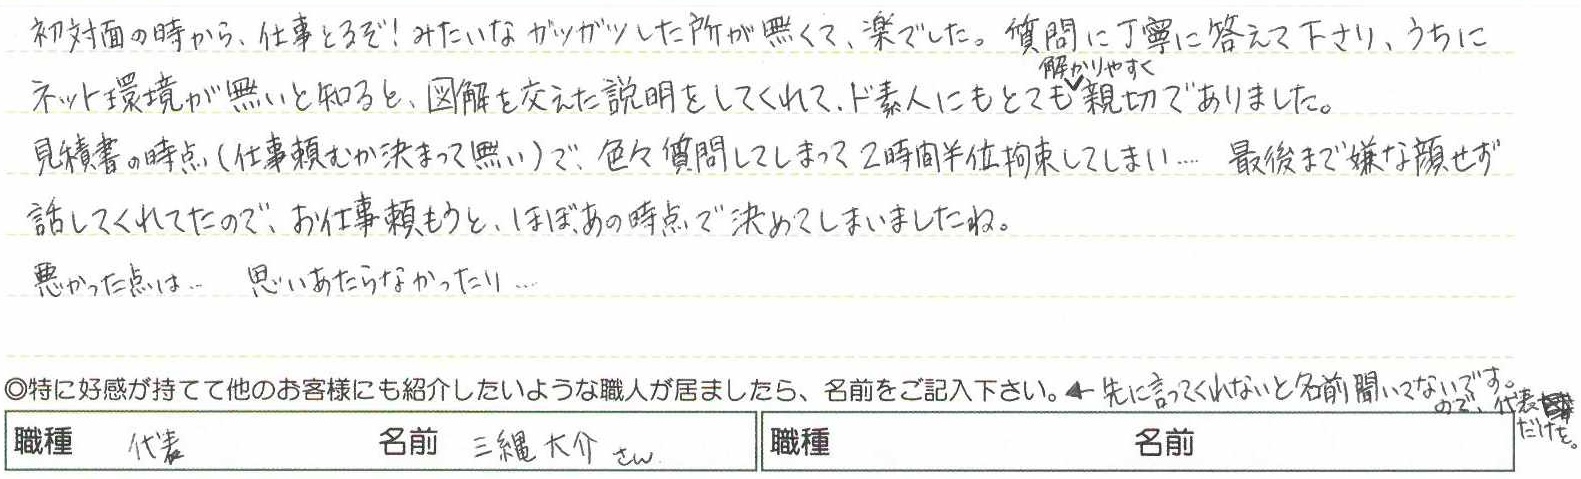 初対面の時から、仕事とるぞ!みたいなガツガツした所が無くて、楽でした。質問に丁寧に答えて下さり、うちに
ネット環境が無いと知ると、図解を交えた説明をしてくれて、ド素人にもとても解かりやすく親切でありました。
見積書の時点(仕事頼むか決まって無い)で、色々質問してしまって2時間半位拘束してしまい…. 最後まで嫌な顔せず
話してくれてたので、お仕事頼もうと、ほぼあの時点で決めてしまいましたね。
悪かった点は… 思いあたらなかったり…
◎特に好感が持てて他のお客様にも紹介したいような職人が居ましたら、名前をご記入下さい。← 先に言ってくれないと名前聞いてないです。
ので、代表
だけを。
職種 代表 名前 三縄 大介 さん 職種 名前